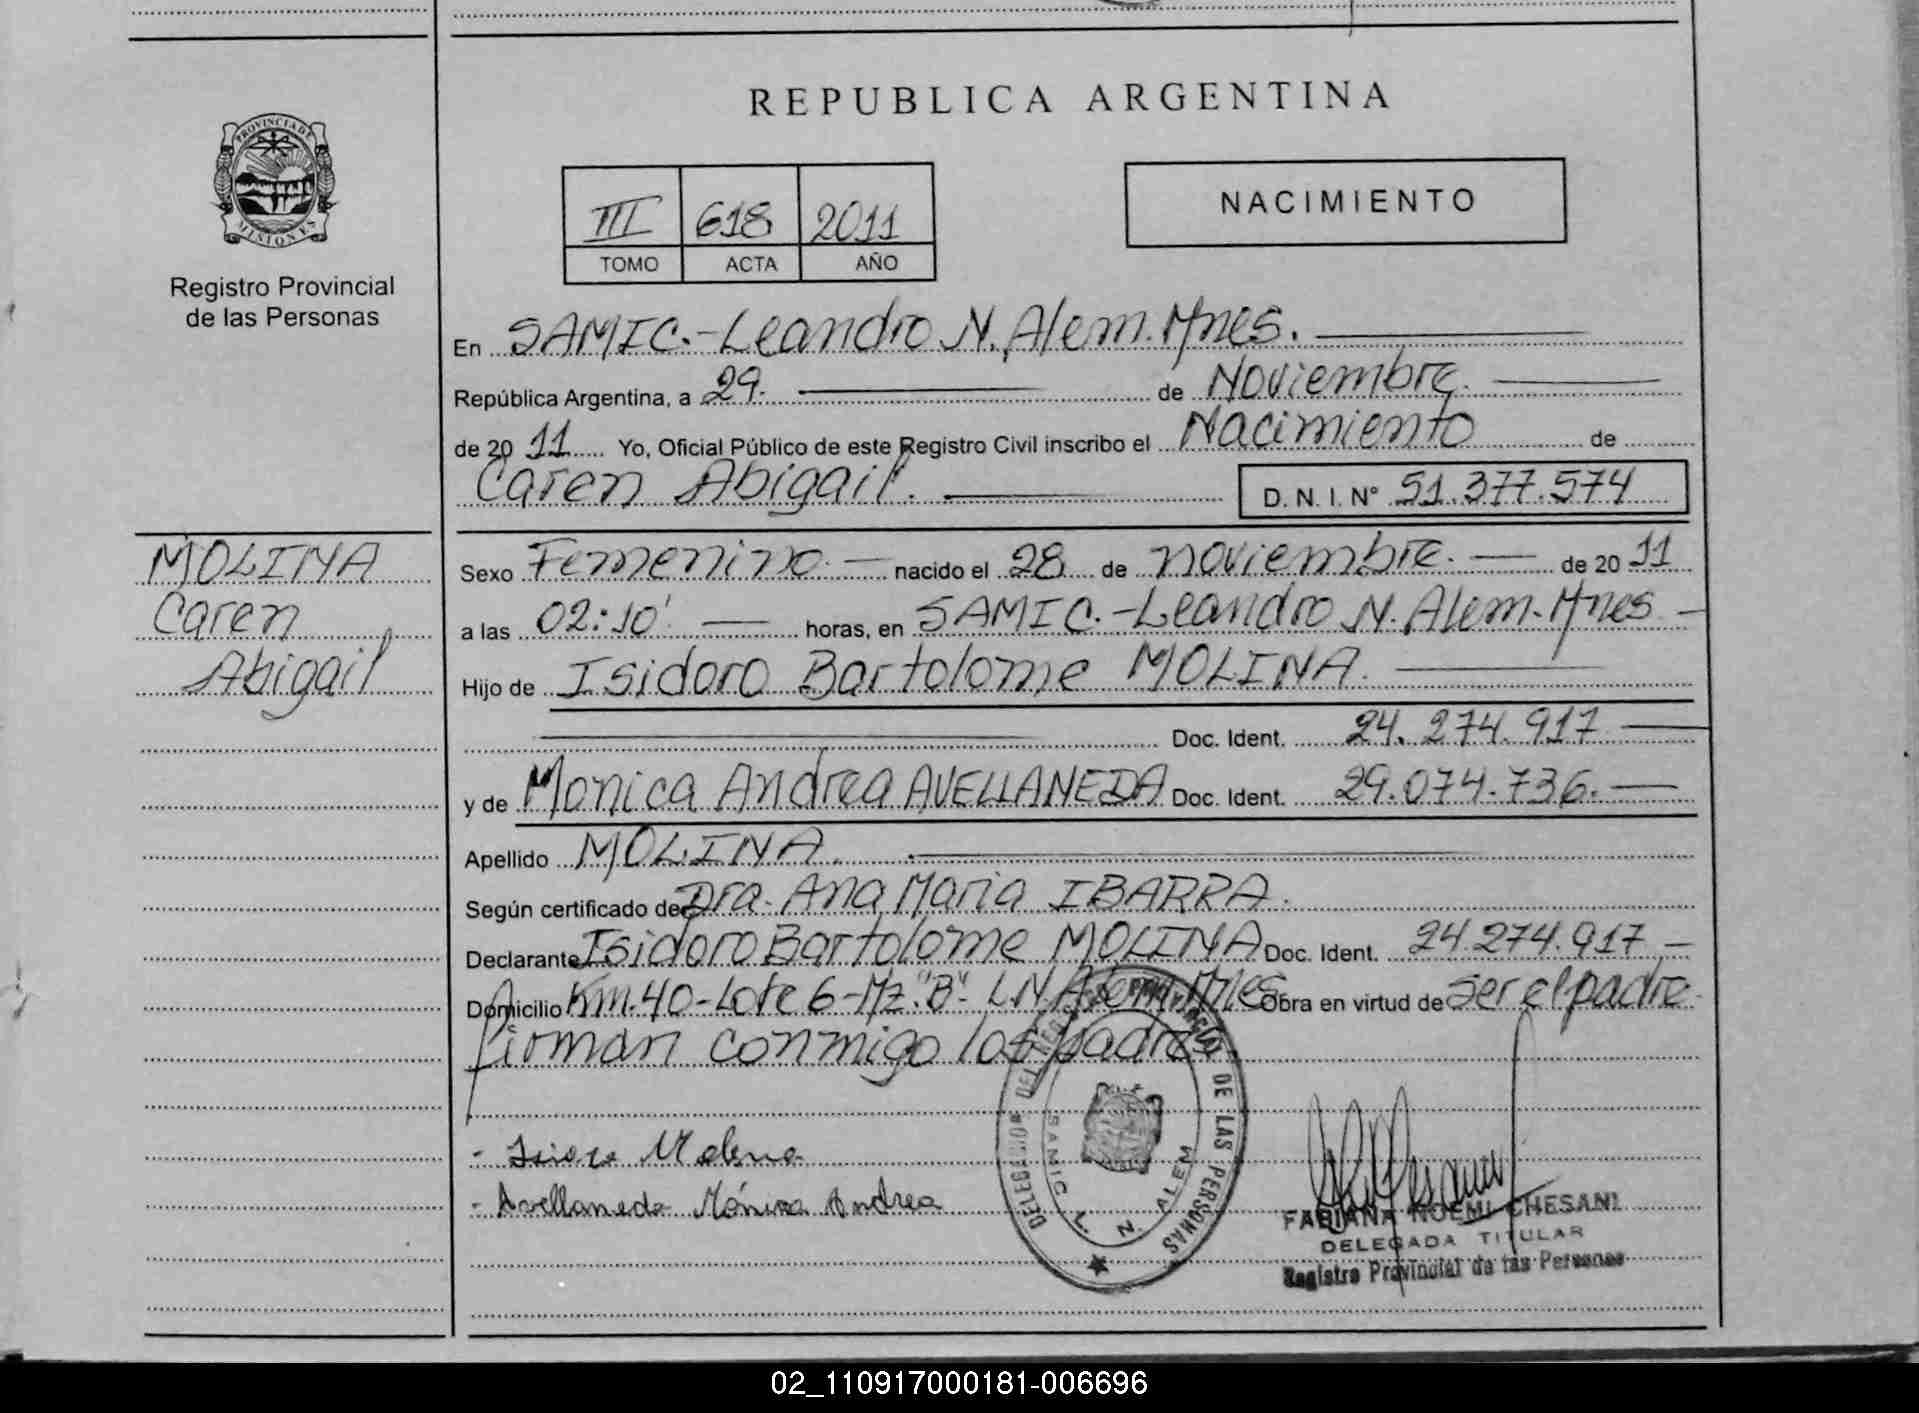 REPUBLICA ARGENTINA
PROVINCIA DE
MISIONES
Registro Provincial
de las Personas
III 618 2011
TOMO ACTA AÑO
NACIMIENTO
En SAMIC.-Leandro N. Alem. Mnes.
República Argentina, a 29. de Noviembre.
de 20 11 Yo, Oficial Público de este Registro Civil inscribo el Nacimiento de
Caren Abigail.
D. N. I. N° 51.377.574
MOLINA
Caren
Abigail
Sexo Femenino.- nacido el 28 de noviembre.- de 20 11
a las 02:10' horas, en SAMIC.-Leandro N. Alem.-Mnes-
Hijo de Isidoro Bartolome MOLINA.
Doc. Ident. 24.274.917
y de Monica Andrea AVELLANEDA Doc. Ident. 29.074.736.-
Apellido MOLINA.
Según certificado de Dra. Ana Maria IBARRA.
Declarante Isidoro Bartolome MOLINA Doc. Ident. 24.274.917-
Domicilio Km.40-Lote 6-Mz."B". L.N. Alem. Mnes Obra en virtud de ser el padre.
firman conmigo los padres
DELEGACION DEL REGISTRO PROVINCIAL DE LAS PERSONAS
SAMIC L. N. ALEM
- Molina
- Avellaneda Mónica Andrea
FABIANA NOEMI CHESANI
DELEGADA TITULAR
Registro Provincial de las Personas
02_110917000181-006696